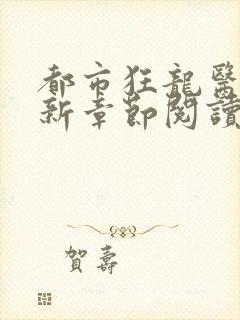 都市狂龍醫
新章節閱讀
賀壽